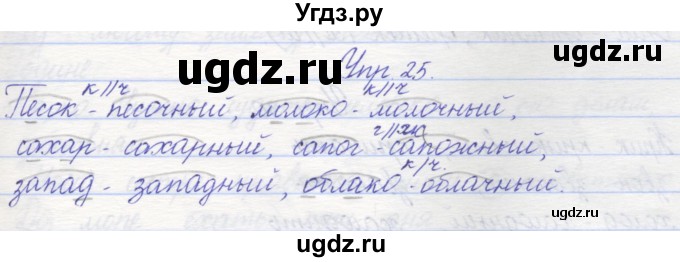 Угдз.ру
ugdz.ru
Упр. 25.
ugdz.ru
к//ч к//ч
Песок - песочный, молоко - молочный,
г//ж
сахар - сахарный, сапог - сапожный,
к//ч.
запад - западный, облако - облачный.
ugdz.ru
ugdz.ru